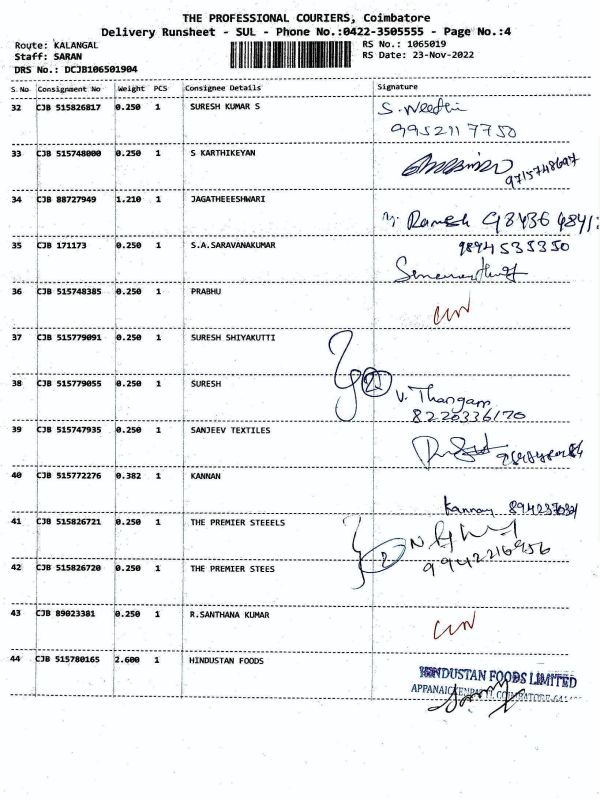 THE PROFESSIONAL COURIERS, Coimbatore
Delivery Runsheet - SUL - Phone No.:0422-3505555 - Page No.:4
Route: KALANGAL
RS No.: 1065019
Staff: SARAN
RS Date: 23-Nov-2022
DRS No.: DCJB106501904
S. No Consignment No Weight PCS Consignee Details Signature
32 CJB 515826817 0.250 1 SURESH KUMAR S
9952117750
33 CJB 515748000 0.250 1 S KARTHIKEYAN
34 CJB 88727949 1.210 1 JAGATHEEESHWARI
Ramesh
35 CJB 171173 0.250 1 S.A.SARAVANAKUMAR 9894535350
36 CJB 515748385 0.250 1 PRABHU
37 CJB 515779091 0.250 1 SURESH SHIYAKUTTI
38 CJB 515779055 0.250 1 SURESH
V. Thangam
8220336170
39 CJB 515747935 0.250 1 SANJEEV TEXTILES
40 CJB 515772276 0.382 1 KANNAN
Kannan
41 CJB 515826721 0.250 1 THE PREMIER STEEELS
2
9942216956
42 CJB 515826720 0.250 1 THE PREMIER STEES
43 CJB 89023381 0.250 1 R.SANTHANA KUMAR
44 CJB 515780165 2.600 1 HINDUSTAN FOODS
HINDUSTAN FOODS LIMITED